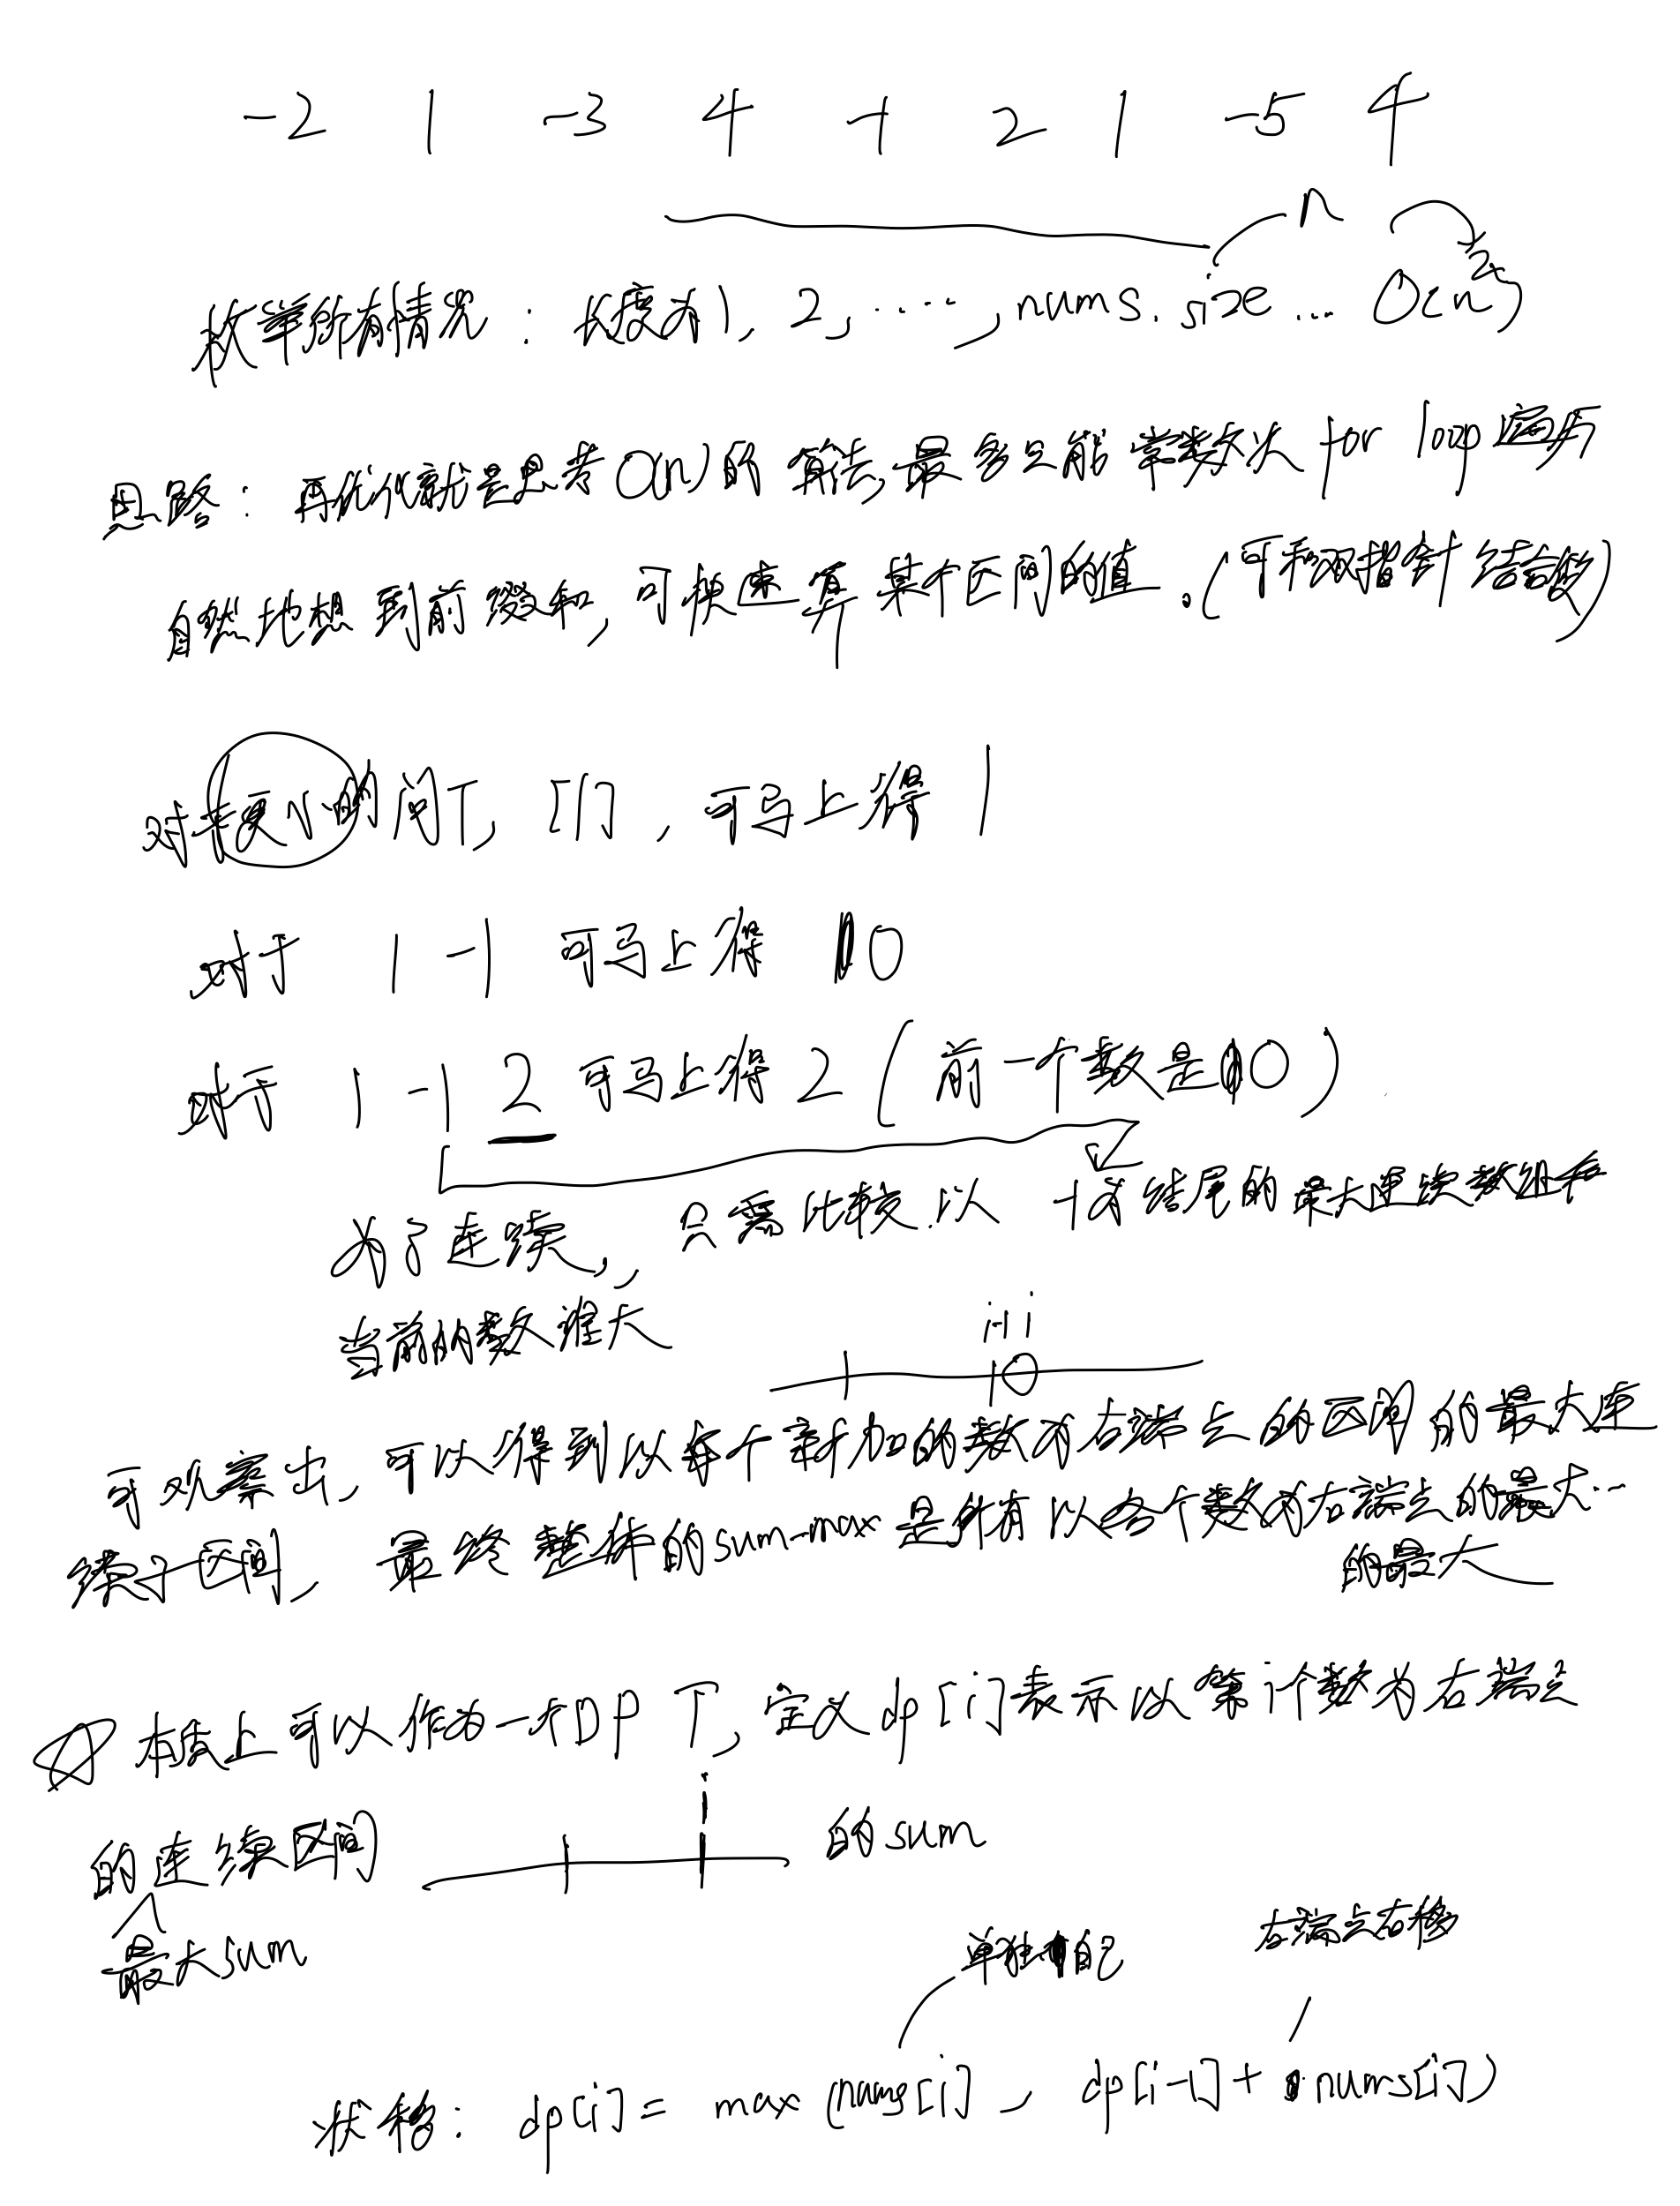 -2 1 -3 4 -1 2 1 -5 4
n
枚举所有情况：长度为1, 2, ……, nums.size … O(n²)
思路：再优化就是思考O(n)的算法, 最多只能常数次 for loop遍历
自然地想到前缀和, 可快速算某个区间的值。(可和双指针结合做)
对长度小的问T, [1], 可马上得 1
对于 1 -1 可马上得 0
对于 1 -1 2 可马上得 2 (前一个数是0)
为了连续, 只需比较以 结尾的最大连续数组和
当前的数谁大
i-1 i
可观察出, 可以得到以每个新加的数为右端点的区间的最大连
续子区间, 最终整体的sum-max是所有以各个数为右端点的最大…
的最大
本质上可以作为一个DP T, 定义dp[i]表示以第i个数为右端点
i
的连续区间 的sum
最大sum
单独自己 右端点右移
状移: dp[i] = max (nums[i], dp[i-1]+ nums[i])